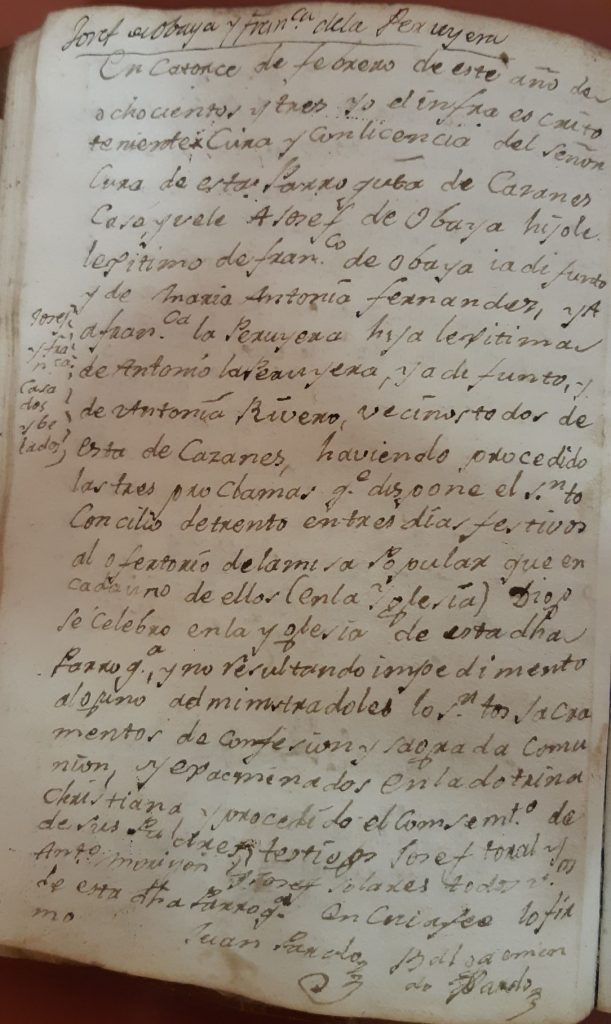 Josef de Obaya y fran.ca de la Peruyera
En Catorce de febrero de este año de
ochocientos y tres yo el infra escrito
teniente Cura y Con licencia del señor
Cura de esta Parroquia de Cazanes
Casé, y velé A Josef de Obaya hijo le
legitimo de fran.co de Obaya ia difunto
y de Maria Antonia fernandez, y A
a fran.ca la Peruyera hija legitima
de Antonio la Peruyera, ya difunto, y
de Antonia Rivero, vecinos todos de
esta de Cazanes, haviendo procedido
las tres proclamas q.e dispone el s.nto
Concilio de trento en tres dias festivos
al ofertorio de la misa Popular que en
cada uno de ellos (en la Yglesia)
se celebro en la yglesia de esta dha
Parroq.a, y no resultando impedimento
alguno administradoles lo s.ntos sacra
mentos de Confesion y sagrada Comu
nion, y examinados en la dotrina
christiana y procedido el Consemt.o de
de sus Padres, testigos Josef toral y
Anto. Josef Solares todos
de esta dha Parroq.a en Cuia fee lo fir
mo
Juan Pardo
Josef
y fra
n.ca
Casa
dos
y be
lados